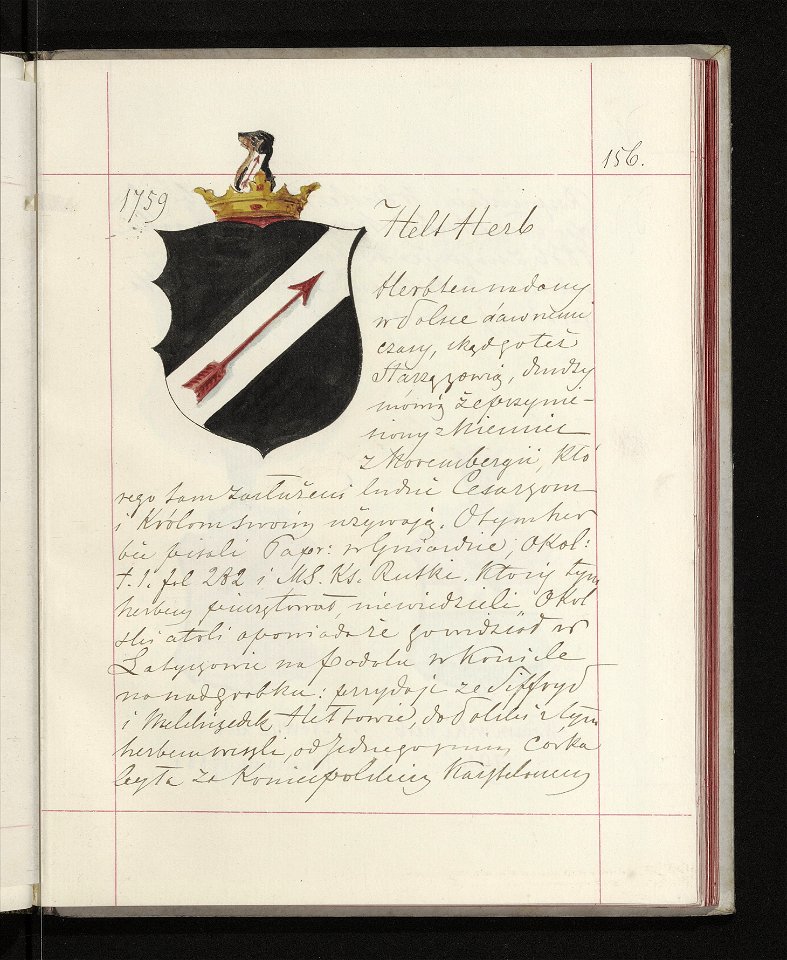 156.
1759
Helt Herb
Herb ten nadany
w Polsce dawnemi
czasy, skąd go też
Starzą zowią, drudzy
mówią że przynie-
siony z Niemiec
z Norembergii, któ
rego tam zasłużeni ludzie Cesarzom
i Królom swoim używają. O tym her
bie pisali Papr: w Gniazdzie, Okol:
t. 1. fol 282 i MS. Ks. Rutki. Który tym
herbem pieczętował, niewiedzieli, Okol
ski atoli opowiada że go widział w
Latyczowie na Podolu w Kościele
na nadgrobku: przydaje ze Siffryd
i Melchizedek Heltowie, do Polski z tym
herbem weszli, od Jednego z nich Córka
była za Koniecpolskim Kasztelanem